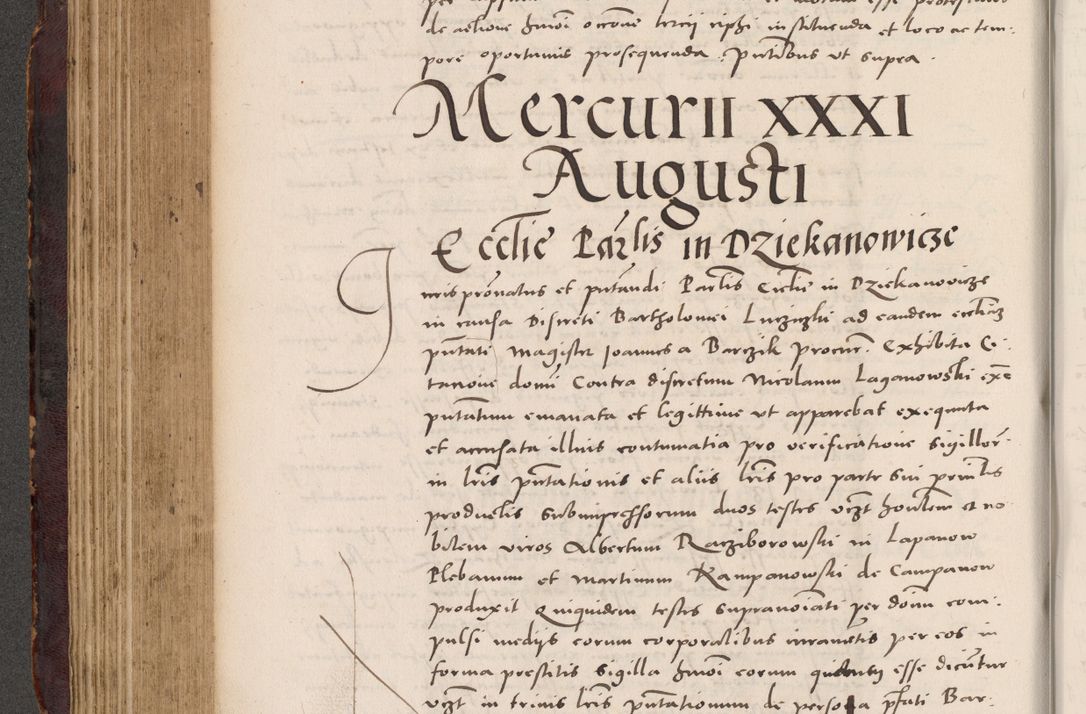 de actione hmoi occone tercii ciphi instituenda et loco ac tem:
pore oportunis prosequenda. Pntibus ut supra.
Mercurii XXXI
Augusti
Ecclie Parlis in Dziekanowicze
Iuris pronatus et pntandi Parlis Ecclie in Dziekanovicze
in causa Discreti Bartholomei Luczizki ad eandem eccliam
pntati Magister Ioannes a Barczik procur. Exhibita Ci:
tatione domi Contra discretum Nicolaum Laganowski exe
pntatum emanata et legittime ut apparebat exequuta
et accusata illius contumatia pro verificatione sigillor
in lris pntationis et aliis lris pro parte sui prinlis
productis subimpressorum duos testes vczt honblem et no
bilem viros Albertum Racziborowski in Lapanow
Plebanum et Martinum Rampanowski de Campanow
produxit Quiquidem testes supranoiati per donum com:
pulsi medijs eorum corporalibus iuramentis per eos in
forma prestitis sigilla hmoi eorum esse dicuntur
vczt in trinis lris pntationum de persona pfati Bar: